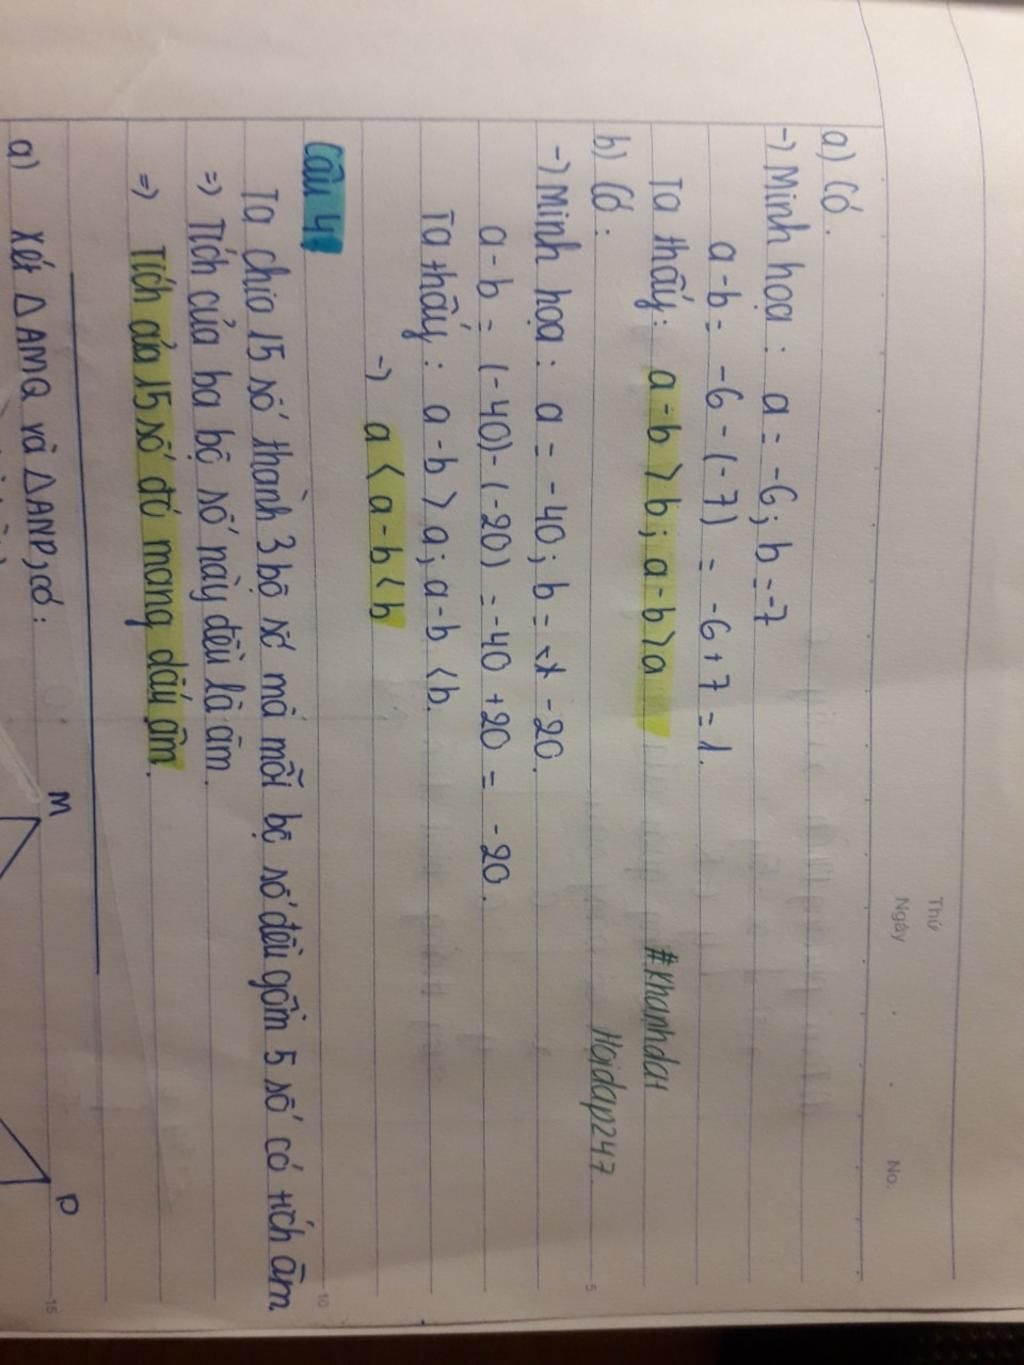 Thứ
Ngày
No.
a) Có.
→ Minh họa : a = -6; b = -7
a - b = -6 - (-7) = -6 + 7 = 1.
Ta thấy: a - b > b; a - b > a
#Khanhdat
b) Có :
Hoidap247
→ Minh họa : a = -40; b = -20.
a - b = (-40) - (-20) = -40 + 20 = -20.
Ta thấy : a - b > a; a - b < b.
→ a < a - b < b
Câu 4:
Ta chia 15 số thành 3 bộ số mà mỗi bộ số đều gồm 5 số có tích âm
⇒ Tích của ba bộ số này đều là âm.
⇒ Tích của 15 số đó mang dấu âm.
a) Xét △AMQ và △ANP, có :
M
P
5
10
15